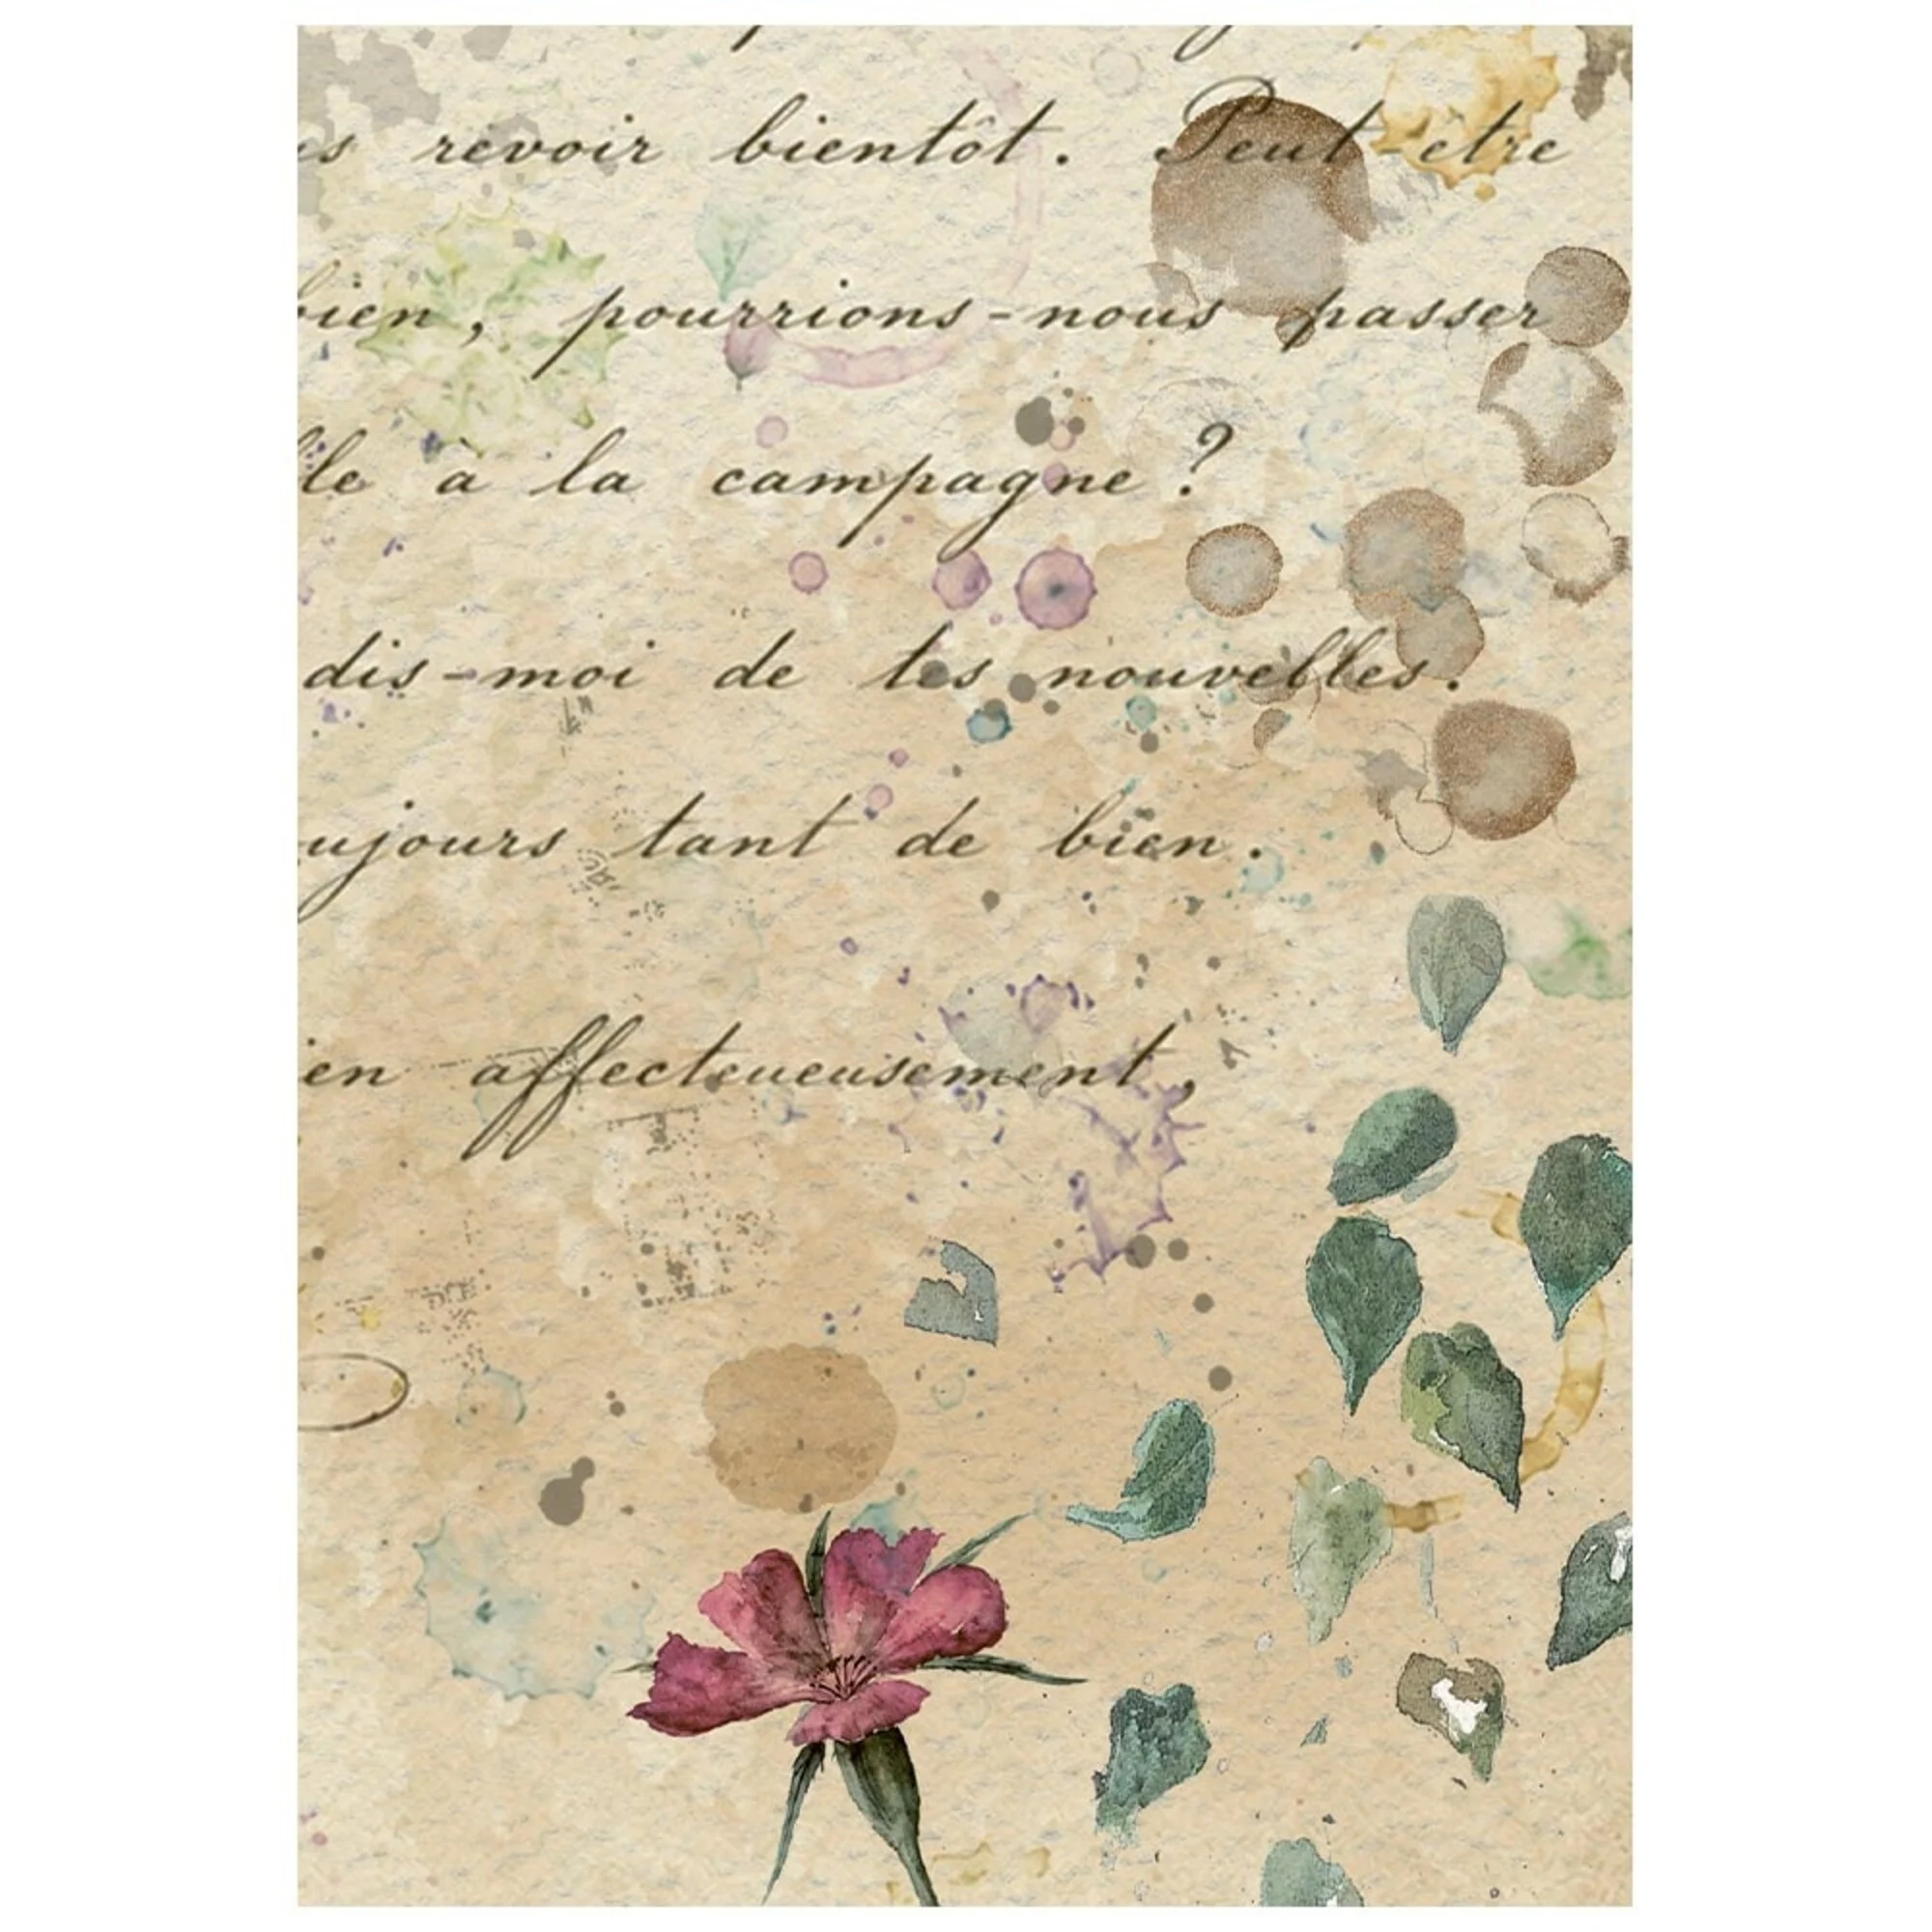 is revoir bientôt. Peut-etre
bien, pourrions-nous passer
lle a la campagne ?
dis-moi de tes nouvelles.
ujours tant de bien.
en affecteueusement,